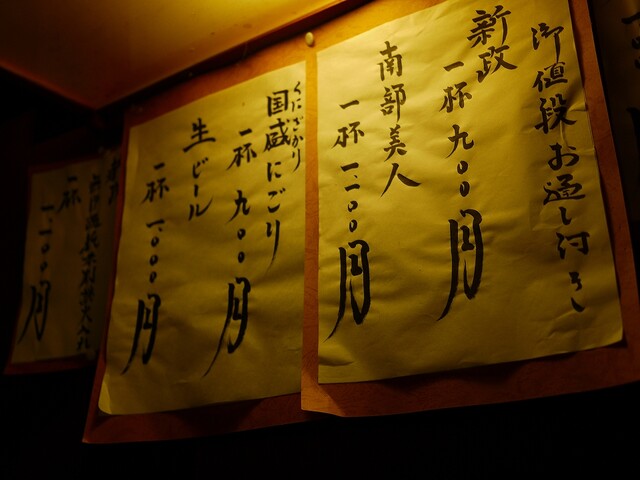 御値段お通し付き
新政
一杯 九〇〇円
南部美人
一杯 一、一〇〇円
くにざかり
国盛にごり
一杯 九〇〇円
生ビール
一杯 一、〇〇〇円
一杯
一、一〇〇円